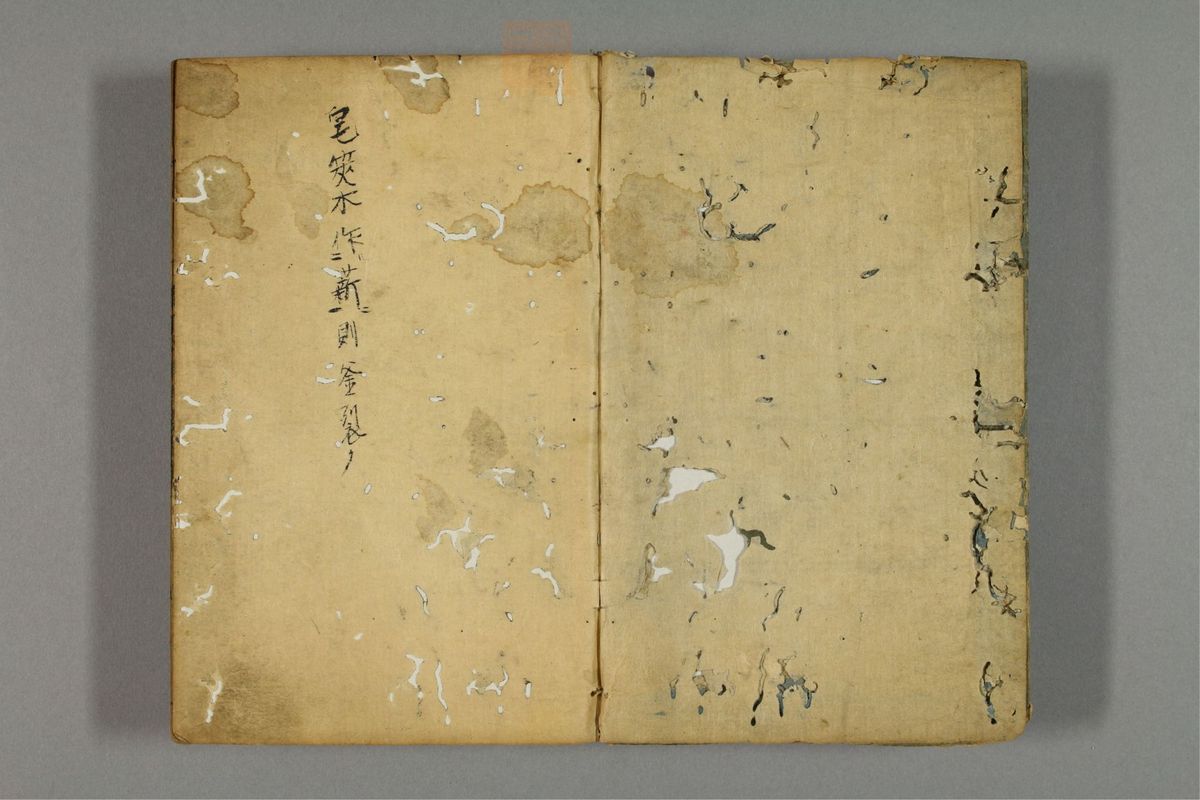 皂筴木作薪則釜裂夕